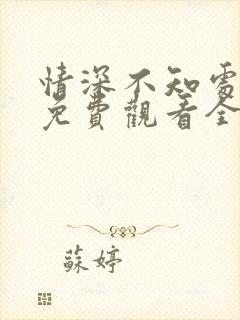 情深不知處
免費觀看全
蘇婷